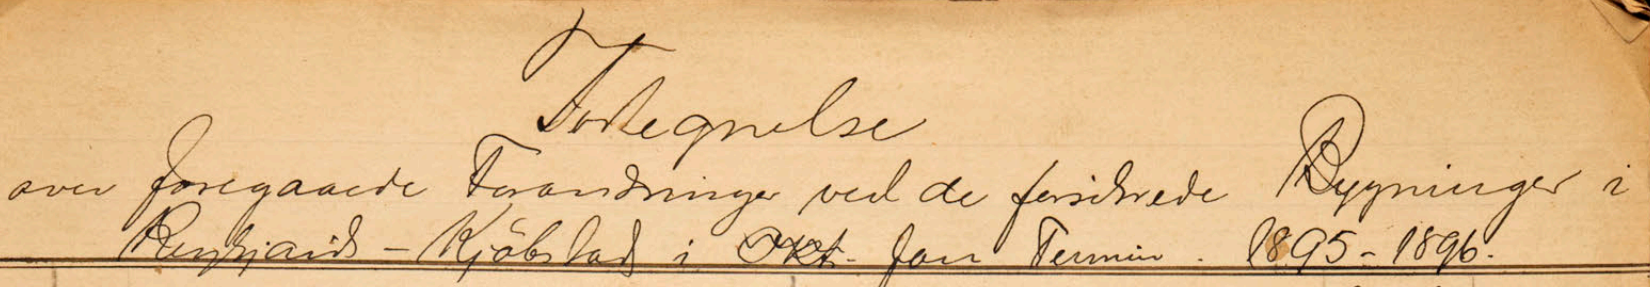 Fortegnelse
over foregaaede Forandringer ved de forsikrede Bygninger i
Reykjavik - Kjöbstad i Okt. - Jan Termin. 1895 - 1896.